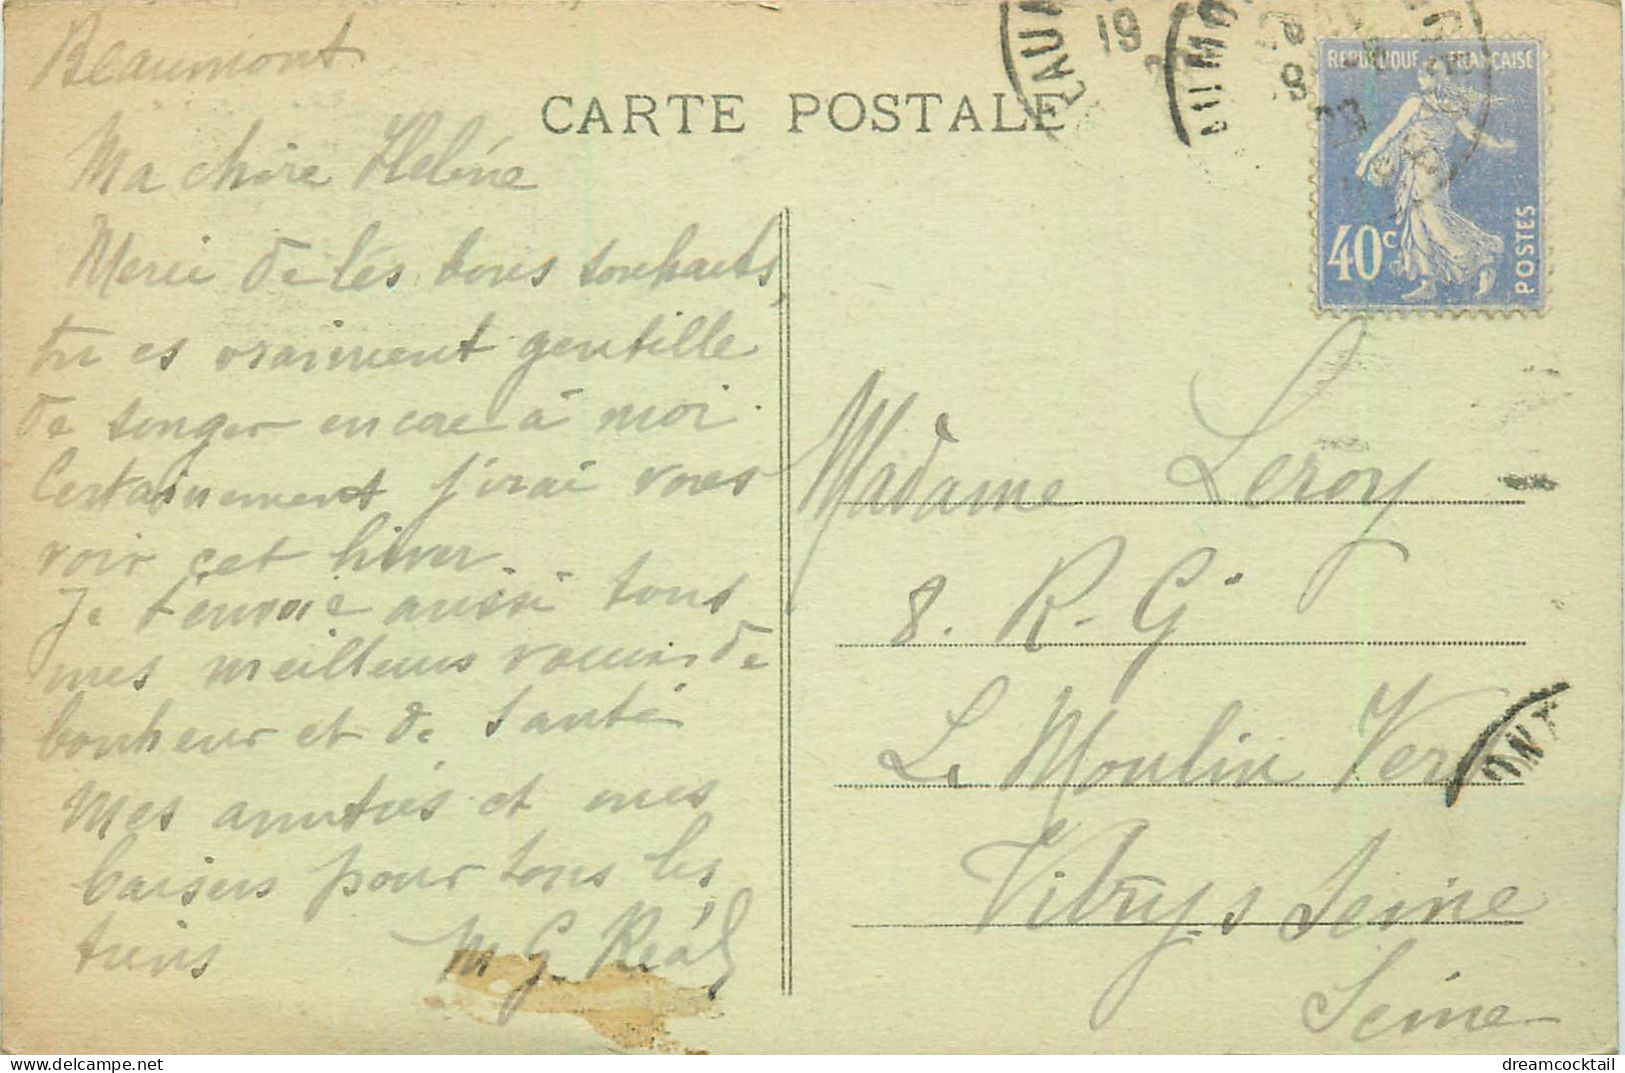 Beaumont
CARTE POSTALE
Ma chère Heléne
Merci de tes bons souhaits,
tu es vraiment gentille
de songer encore à moi.
Certainement j'irai vous
voir cet hiver.
Je t'envoie aussi tous
mes meilleurs voeux de
bonheur et de santé
Mes amitiés et mes
baisers pour tous les
tiens
M G. Réal
REPUBLIQUE FRANÇAISE
40c
POSTES
19
Madame Leroy
8. R. G.
Le Moulin Vert
Vitry s Seine
Seine
dreamcocktail